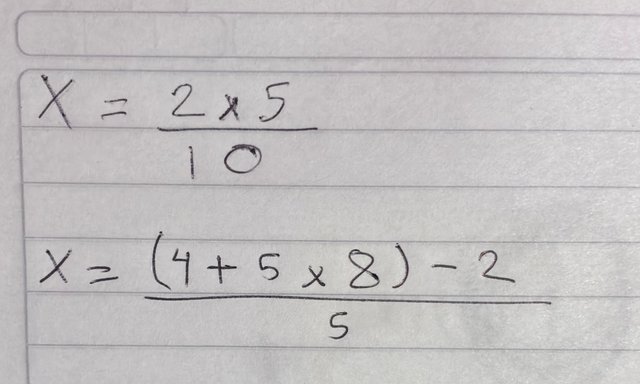 X = 2 x 5
10
X = (4 + 5 x 8) - 2
5